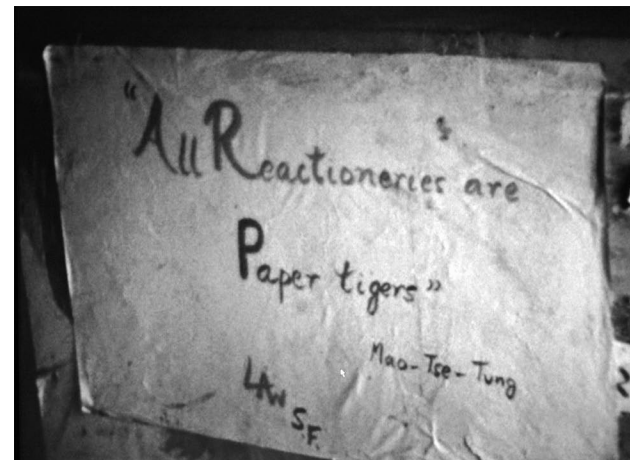 "All Reactioneries are
Paper tigers"
Mao-Tse-Tung
LAW
S.F.
2